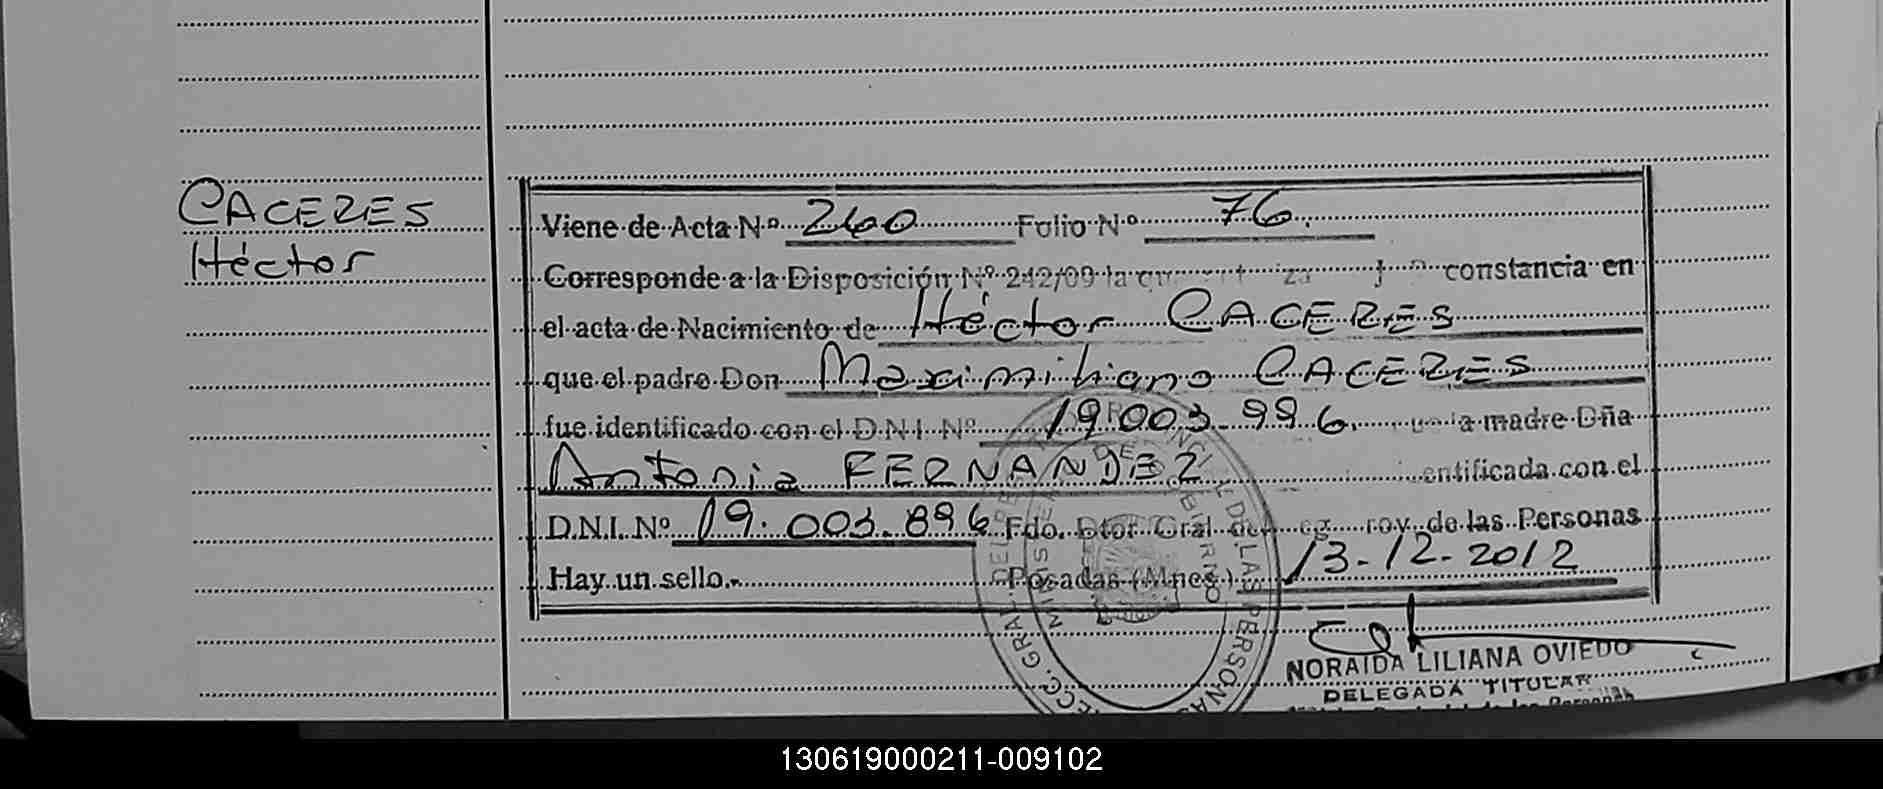 CACERES
Héctor
Viene de Acta Nº 260 Folio Nº 76.
Corresponde a la Disposición Nº 242/09 la constancia en
el acta de Nacimiento de Héctor CACERES
que el padre Don Maximiliano CACERES
fue identificado con el D.N.I. Nº 19.003.996. la madre Dña
Antonia FERNANDEZ entificada con el
D.N.I. Nº 19.003.896 Fdo. Dtor. Gral. de las Personas
Hay un sello.- Posadas (Mnes.) 13-12-2012
NORAIDA LILIANA OVIEDO
DELEGADA TITULAR
de las Personas
130619000211-009102